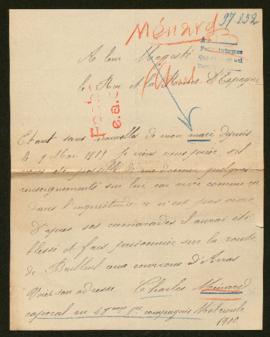 Ménard
97.852
A leur Majesté
le Roi et la Reine d'Espagne
Etant sans nouvelles de mon mari depuis
le 9 Mai 1915 je viens vous prier, s'il
est possible de me donner quelques
renseignements sur lui car vivre comme ça
dans l'inquiétude ce n'est pas vivre
D'après ses camarades il aurait été
blessé et fait prisonnier sur la route
de Bailleul aux environs d'Arras
Voici son adresse Charles Ménard
caporal au compagnie Matricule